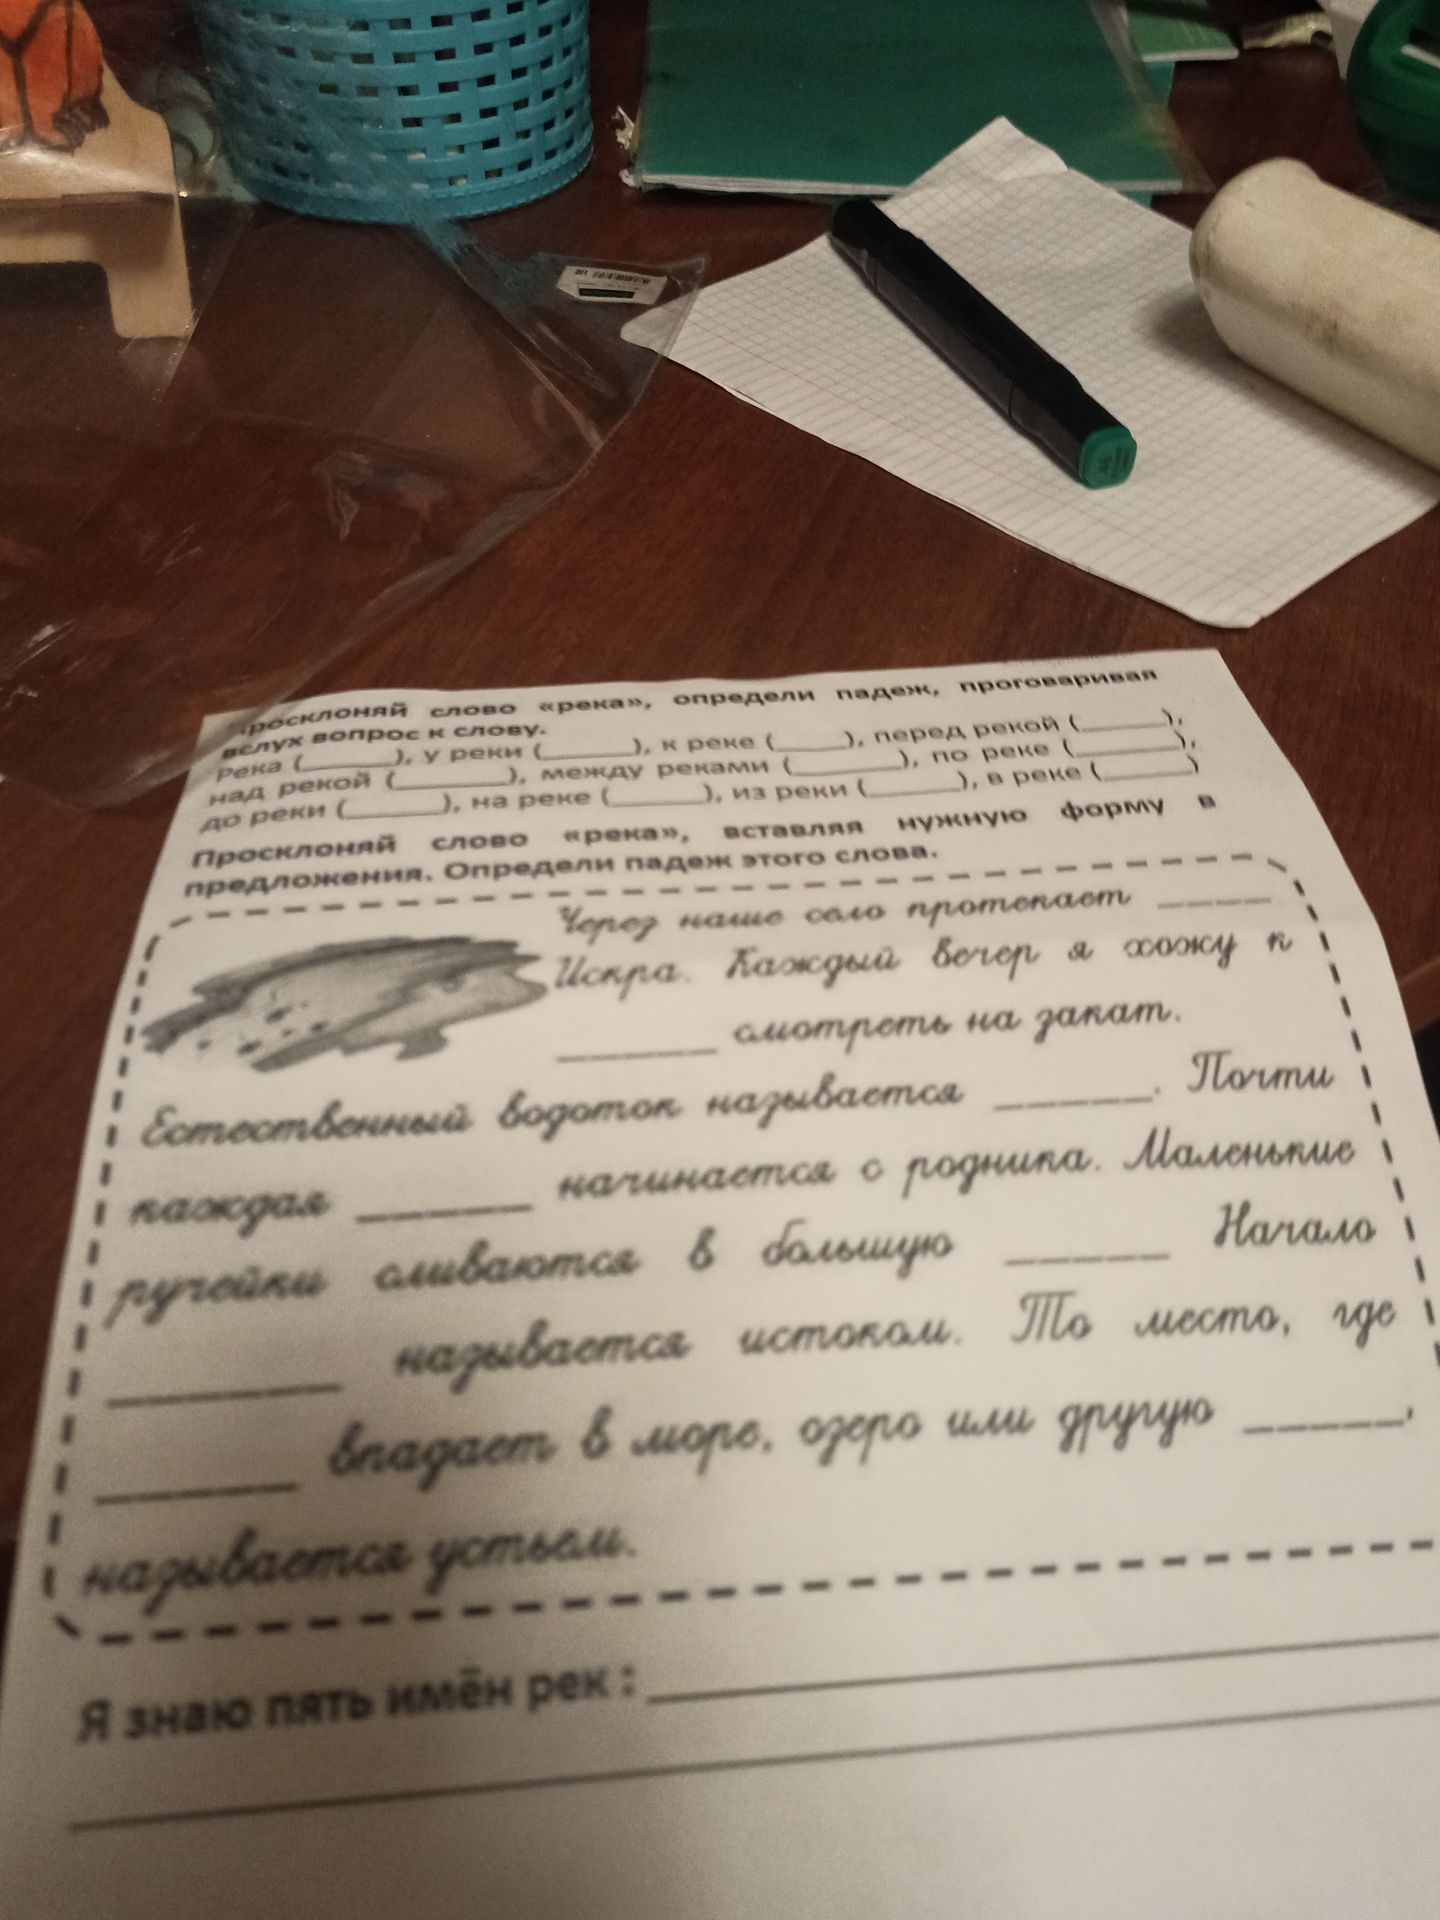 Просклоняй слово «река», определи падеж, проговаривая
вслух вопрос к слову.
река (______), у реки (______), к реке (____), перед рекой (______),
над рекой (_______), между реками (_______), по реке (_______),
до реки (______), на реке (______), из реки (______), в реке (______)
Просклоняй слово «река», вставляя нужную форму в
предложения. Определи падеж этого слова.
Через наше село протекает ____
Искра. Каждый вечер я хожу к
_____ смотреть на закат.
Естественный водоток называется _____. Почти
каждая _____ начинается с родника. Маленькие
ручейки сливаются в большую _____ Начало
_______ называется истоком. То место, где
______ впадает в море, озеро или другую _____,
называется устьем.
Я знаю пять имён рек :